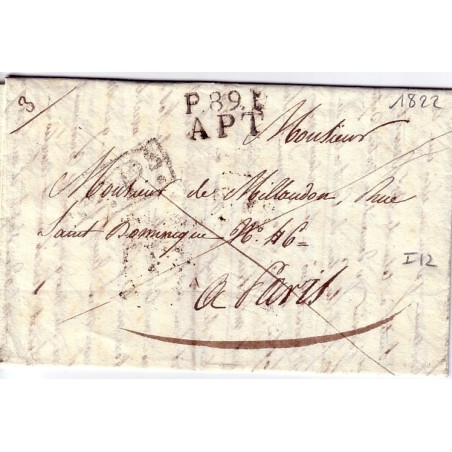 3
P.89.P.
APT
1822
Monsieur
Monsieur de Millaudon, Rue
Saint Dominique N.º 46=
I12
a Paris